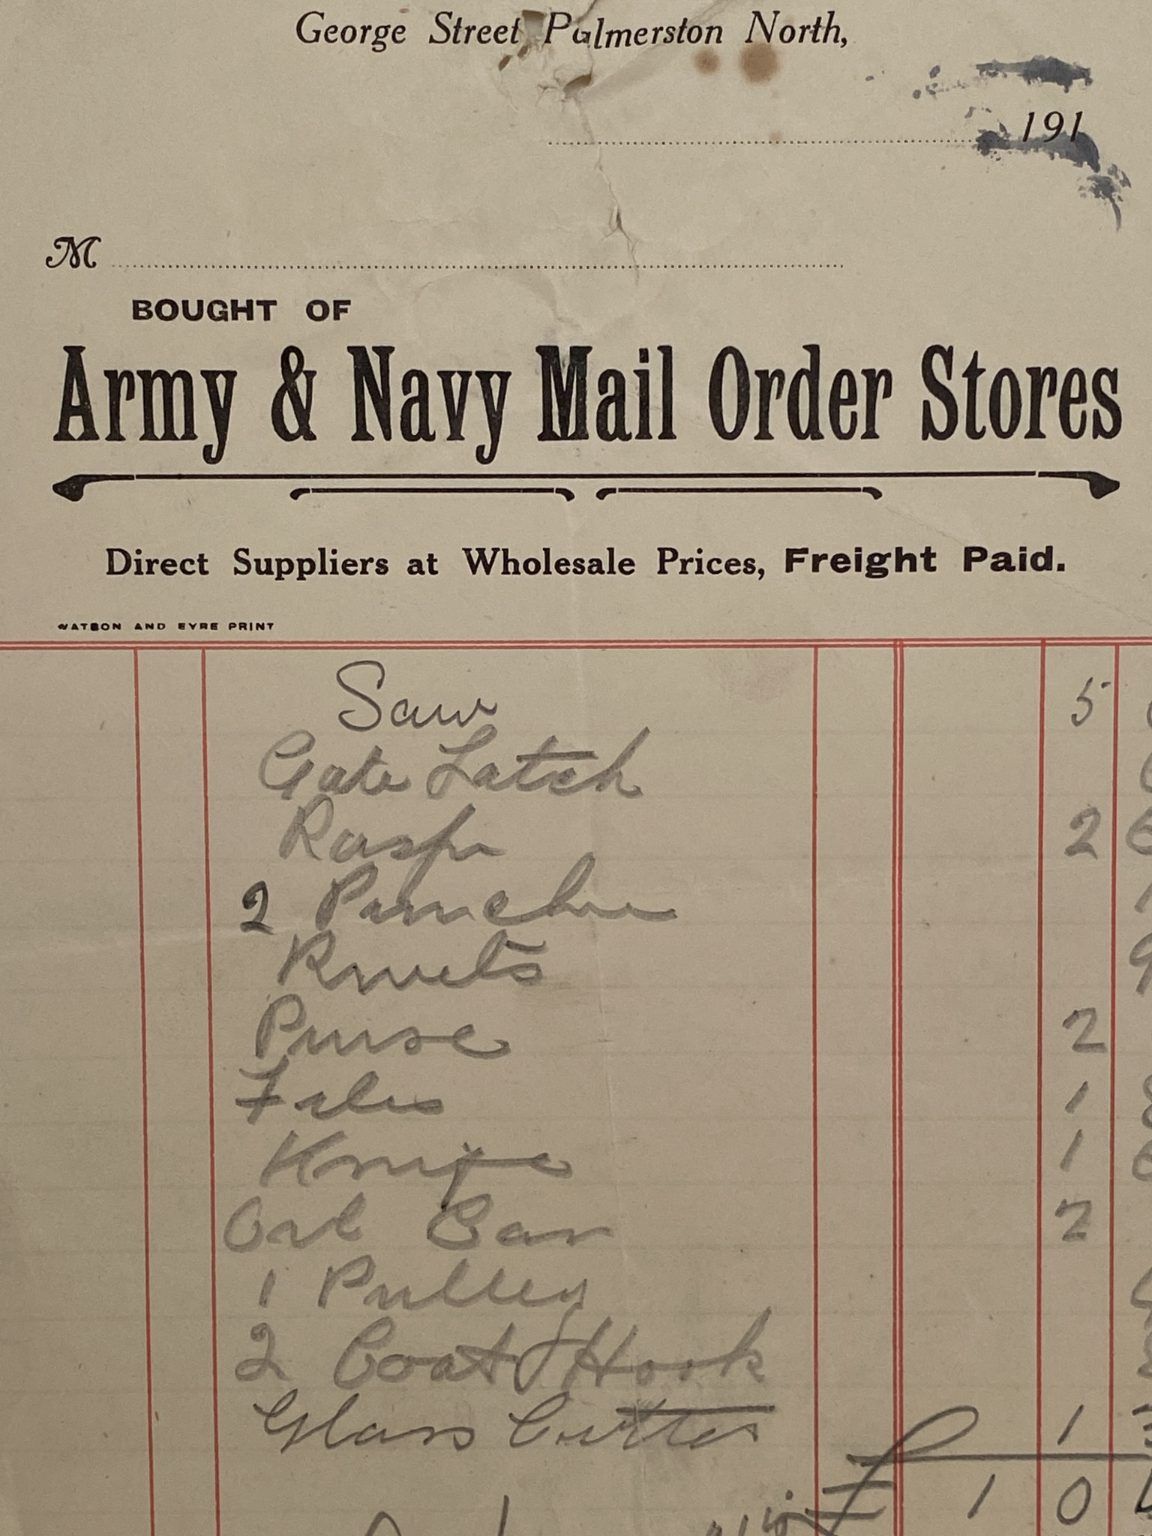 George Street Palmerston North,
191
M
BOUGHT OF
Army & Navy Mail Order Stores
Direct Suppliers at Wholesale Prices, Freight Paid.
WATSON AND EYRE PRINT
Saw 5
Gate Latch
Rasp 2 6
2 Punches
Rivets 9
Purse 2
Files 1
Knife 1 6
Oil Can 2
1 Pulley
2 Coat Hook
Glass Cutter 1 3
£ 1 0